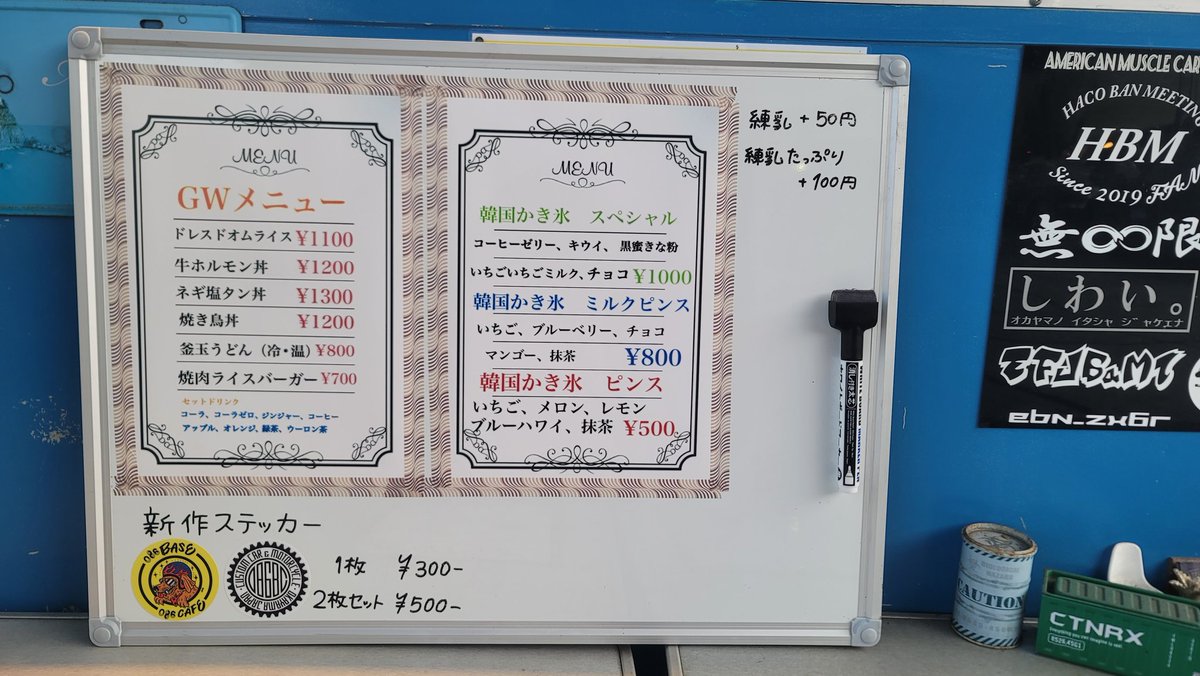 MENU
GWメニュー
ドレスドオムライス ¥1100
牛ホルモン丼 ¥1200
ネギ塩タン丼 ¥1300
焼き鳥丼 ¥1200
釜玉うどん（冷・温）¥800
焼肉ライスバーガー ¥700
セットドリンク
コーラ、コーラゼロ、ジンジャー、コーヒー
アップル、オレンジ、緑茶、ウーロン茶
MENU
韓国かき氷 スペシャル
コーヒーゼリー、キウイ、 黒蜜きな粉
いちごいちごミルク、チョコ ¥1000
韓国かき氷 ミルクピンス
いちご、ブルーベリー、チョコ
マンゴー、抹茶 ¥800
韓国かき氷 ピンス
いちご、メロン、レモン
ブルーハワイ、抹茶 ¥500
練乳 +50円
練乳たっぷり
+100円
新作ステッカー
086 BASE
086 CAFE
CUSTOM CAR & MOTORCYCLE OKAYAMA JAPAN
1枚 ¥300-
2枚セット ¥500-
AMERICAN MUSCLE CAR
HACO BAN MEETING
HBM
Since 2019 FAM
無∞限
しわい。
オカヤマノ イタシャ ジャケェナ
CAUTION
CTNRX